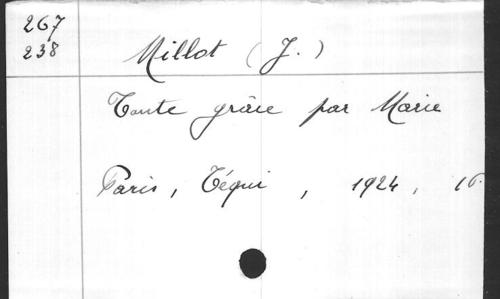 267
238
Millot (J.)
Toute grâce par Marie
Paris, Téqui, 1924, 16